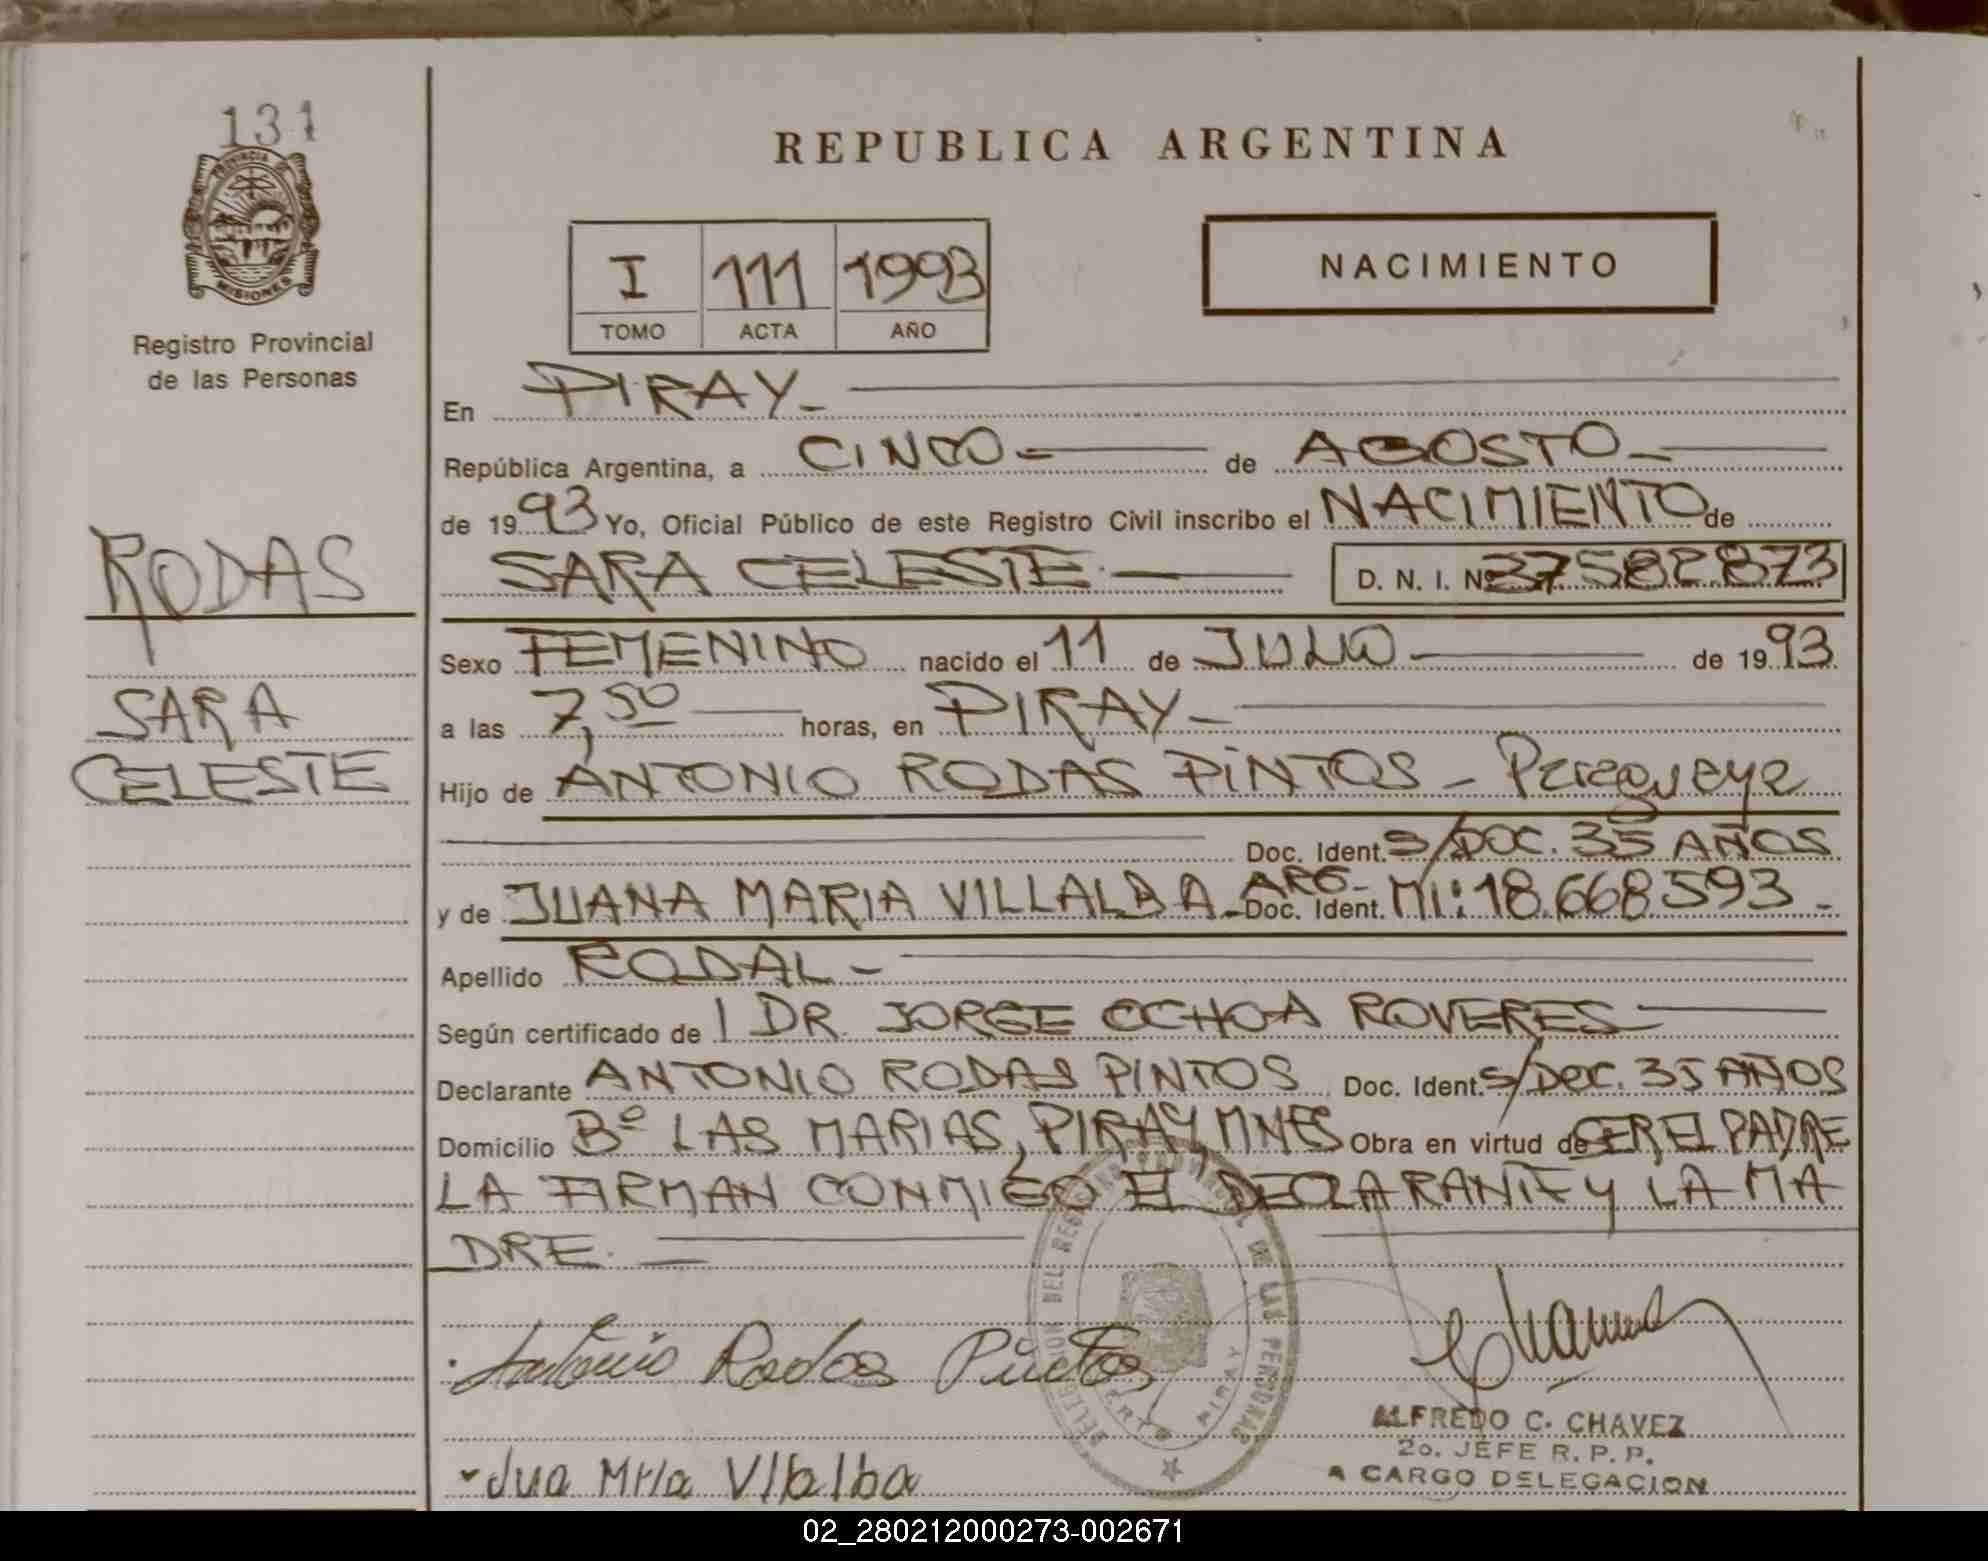 131
PROVINCIA DE
MISIONES
Registro Provincial
de las Personas
RODAS
SARA
CELESTE
REPUBLICA ARGENTINA
I 111 1993
TOMO ACTA AÑO
NACIMIENTO
En PIRAY
República Argentina, a CINCO de AGOSTO
de 1993 Yo, Oficial Público de este Registro Civil inscribo el NACIMIENTO de
SARA CELESTE D. N. I. Nº 37582873
Sexo FEMENINO nacido el 11 de JULIO de 1993
a las 7,50 horas, en PIRAY
Hijo de ANTONIO RODAS PINTOS - Paraguaya
Doc. Ident. S/DOC. 35 AÑOS
y de JUANA MARIA VILLALBA - ARG- Doc. Ident. MI: 18.668.593
Apellido RODAL
Según certificado de DR. JORGE OCHOA ROVERES
Declarante ANTONIO RODAS PINTOS Doc. Ident. S/DOC. 35 AÑOS
Domicilio Bº LAS MARIAS, PIRAY, MNES Obra en virtud de SER EL PADRE
LA FIRMAN CONMIGO EL DECLARANTE y LA MA
DRE.
Antonio Rodas Pintos
DELEGACION DEL REGISTRO PROVINCIAL DE LAS PERSONAS
PUERTO PIRAY
ALFREDO C. CHAVEZ
2o. JEFE R. P. P.
A CARGO DELEGACION
Jua Mria Vlbalba
02_280212000273-002671